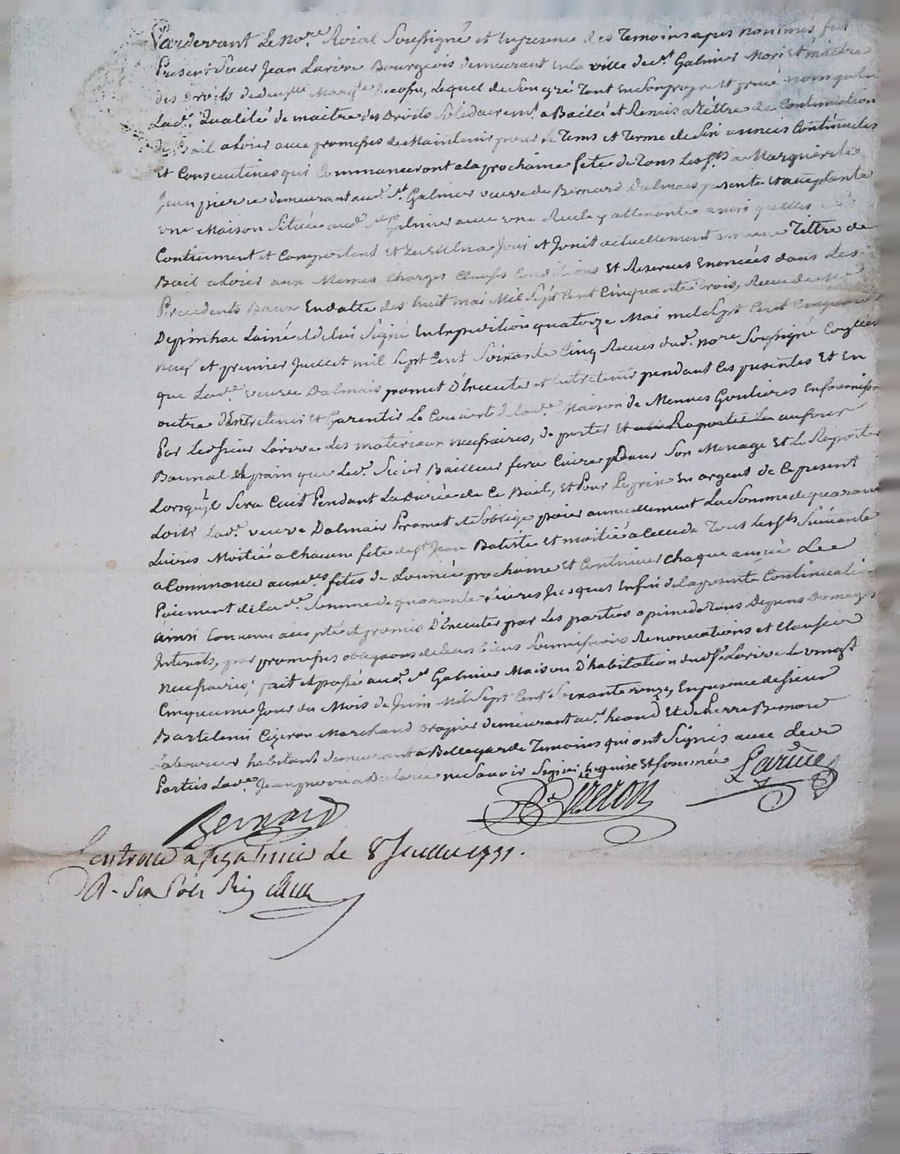 Pardevant Le No.re Roial Soussigné et En presence des Temoins apres nommés fut
Present Sieur Jean Larive Bourgeois demeurant en la ville de St. Galmier Mari et maitre
des Droits de de.lle Marg.te Lequel de Son gré Tant En Son propre et privé nom qu'en
Lad.e Qualité de maitre des Droits Solidairement a Baillé et Remis a Tittre de Continuation
de Bail a loier avec promesses de Maintenir pour le Tems et Terme de Six années Continuelles
et Consecutives qui Commanceront a la prochaine fete de Tous Les S.ts a Marguerite
Jeanpierre demeurant aud. St. Galmier veuve de Bernard Dalmais presente et acceptante
une Maison Située aud. St. Galmier avec une attenante ainsi qu'elles se
Contiennent et Comportent et Jouit et Jouit actuellement Tittre de
Bail a loier aux Memes Charges Clauses Conditions et Reserves Enoncées dans les
Precedents Baux En datte des huit mai Mil Sept Cent Cinquante trois, Receu de M.e
Depinhac Lainé et de lui Signé En Expedition quatorze Mai mil Sept Cent Cinquante
neuf et premier Juillet mil Sept Cent Soixante Cinq Receus dud. no.re Soussigné
que Lad.e veuve Dalmais promet D'Executer et Entretenir pendant Ces presentes Et En
outre d'Entretenir et Garentir Le Couvert de lad.e Maison de Mennes Goutieres En fournissant
Par led. Sieur Larive des materiaux necessaires, de porter au four
Bannal Le pain que led. Sieur Bailleur fera Cuire pour Son Menage et Le Reporter
Lorsqu'il Sera Cuit Pendant La Durée de Ce Bail, et Pour Le prix En argent de Ce present
Lad.e veuve Dalmais Promet et S'oblige paier annuellement La Somme de quarante
Livres Moitié a Chacune fete de St. Jean Batiste et moitié a Celle de Tous Les S.ts Suivante
a Commancer aux d.es fetes de L'année prochaine et Continuer Chaque année Le
Paiement de lad.e Somme de quarante Livres Jusques En fin de la presente Continuation
ainsi Convenu accepté et promis D'Executer par les parties a peine de Tous Depens Domages
Interets, par promesses obligations de leurs biens Soumissions Renonciations et Clauses
necessaires; fait et passé aud. St. Galmier Maison D'habitation dud. Sr. Larive Le vingt
Cinquieme Jour du Mois de Juin Mil Sept Cent Soixante onze, En presence de Sieur
Bartelemi Cizeron Marchand Drapier demeurant et de Pierre Bernard
Laboureur habitant demeurant a Bellegarde Temoins qui ont Signés avec led. Sr.
Parties Lad.e Jeanpierre a Declaré ne Savoir Signer Enquise et Sommée Larive
Bernard Cizeron
Controlé a St. Galmier le 8 Juillet 1771.
R. Six Sols